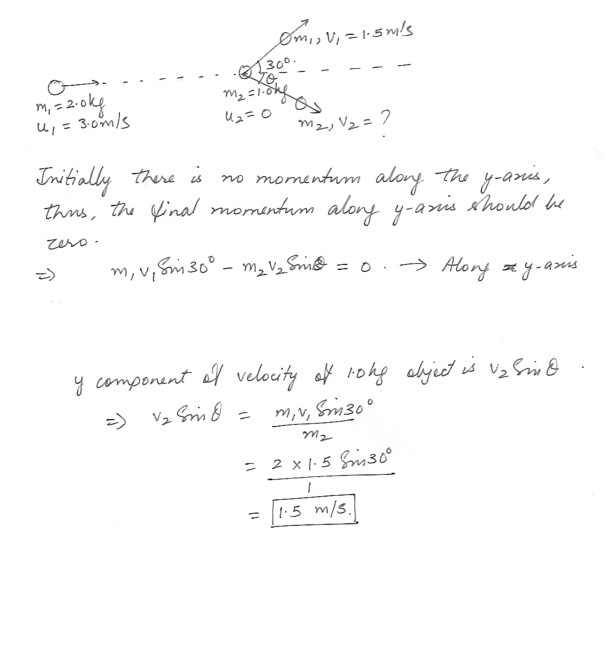 m₁, V₁ = 1.5 m/s
30°
θ
m₁ = 2.0kg
u₁ = 3.0m/s
m₂ = 1.0kg
u₂ = 0
m₂, V₂ = ?
Initially there is no momentum along the y-axis,
thus, the final momentum along y-axis should be
zero.
⇒ m₁V₁ Sin30° - m₂V₂ Sinθ = 0. → Along y-axis
y component of velocity of 1.0kg object is V₂ Sinθ.
⇒ V₂ Sinθ = m₁V₁ Sin30°
m₂
= 2 x 1.5 Sin30°
1
= 1.5 m/s.